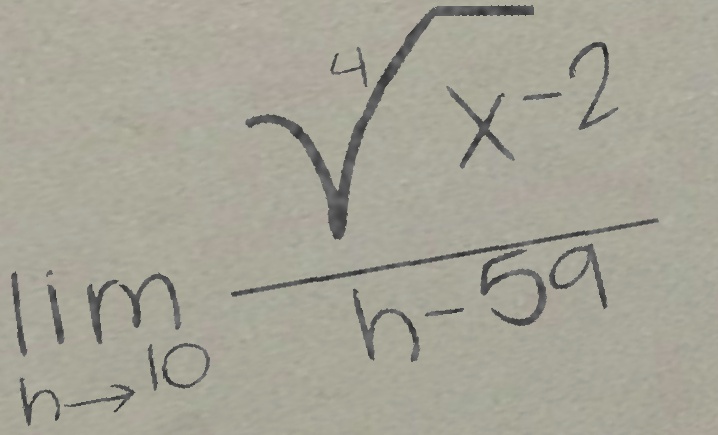 \lim_{h \to 10} \frac{\sqrt[4]{x-2}}{h-59}